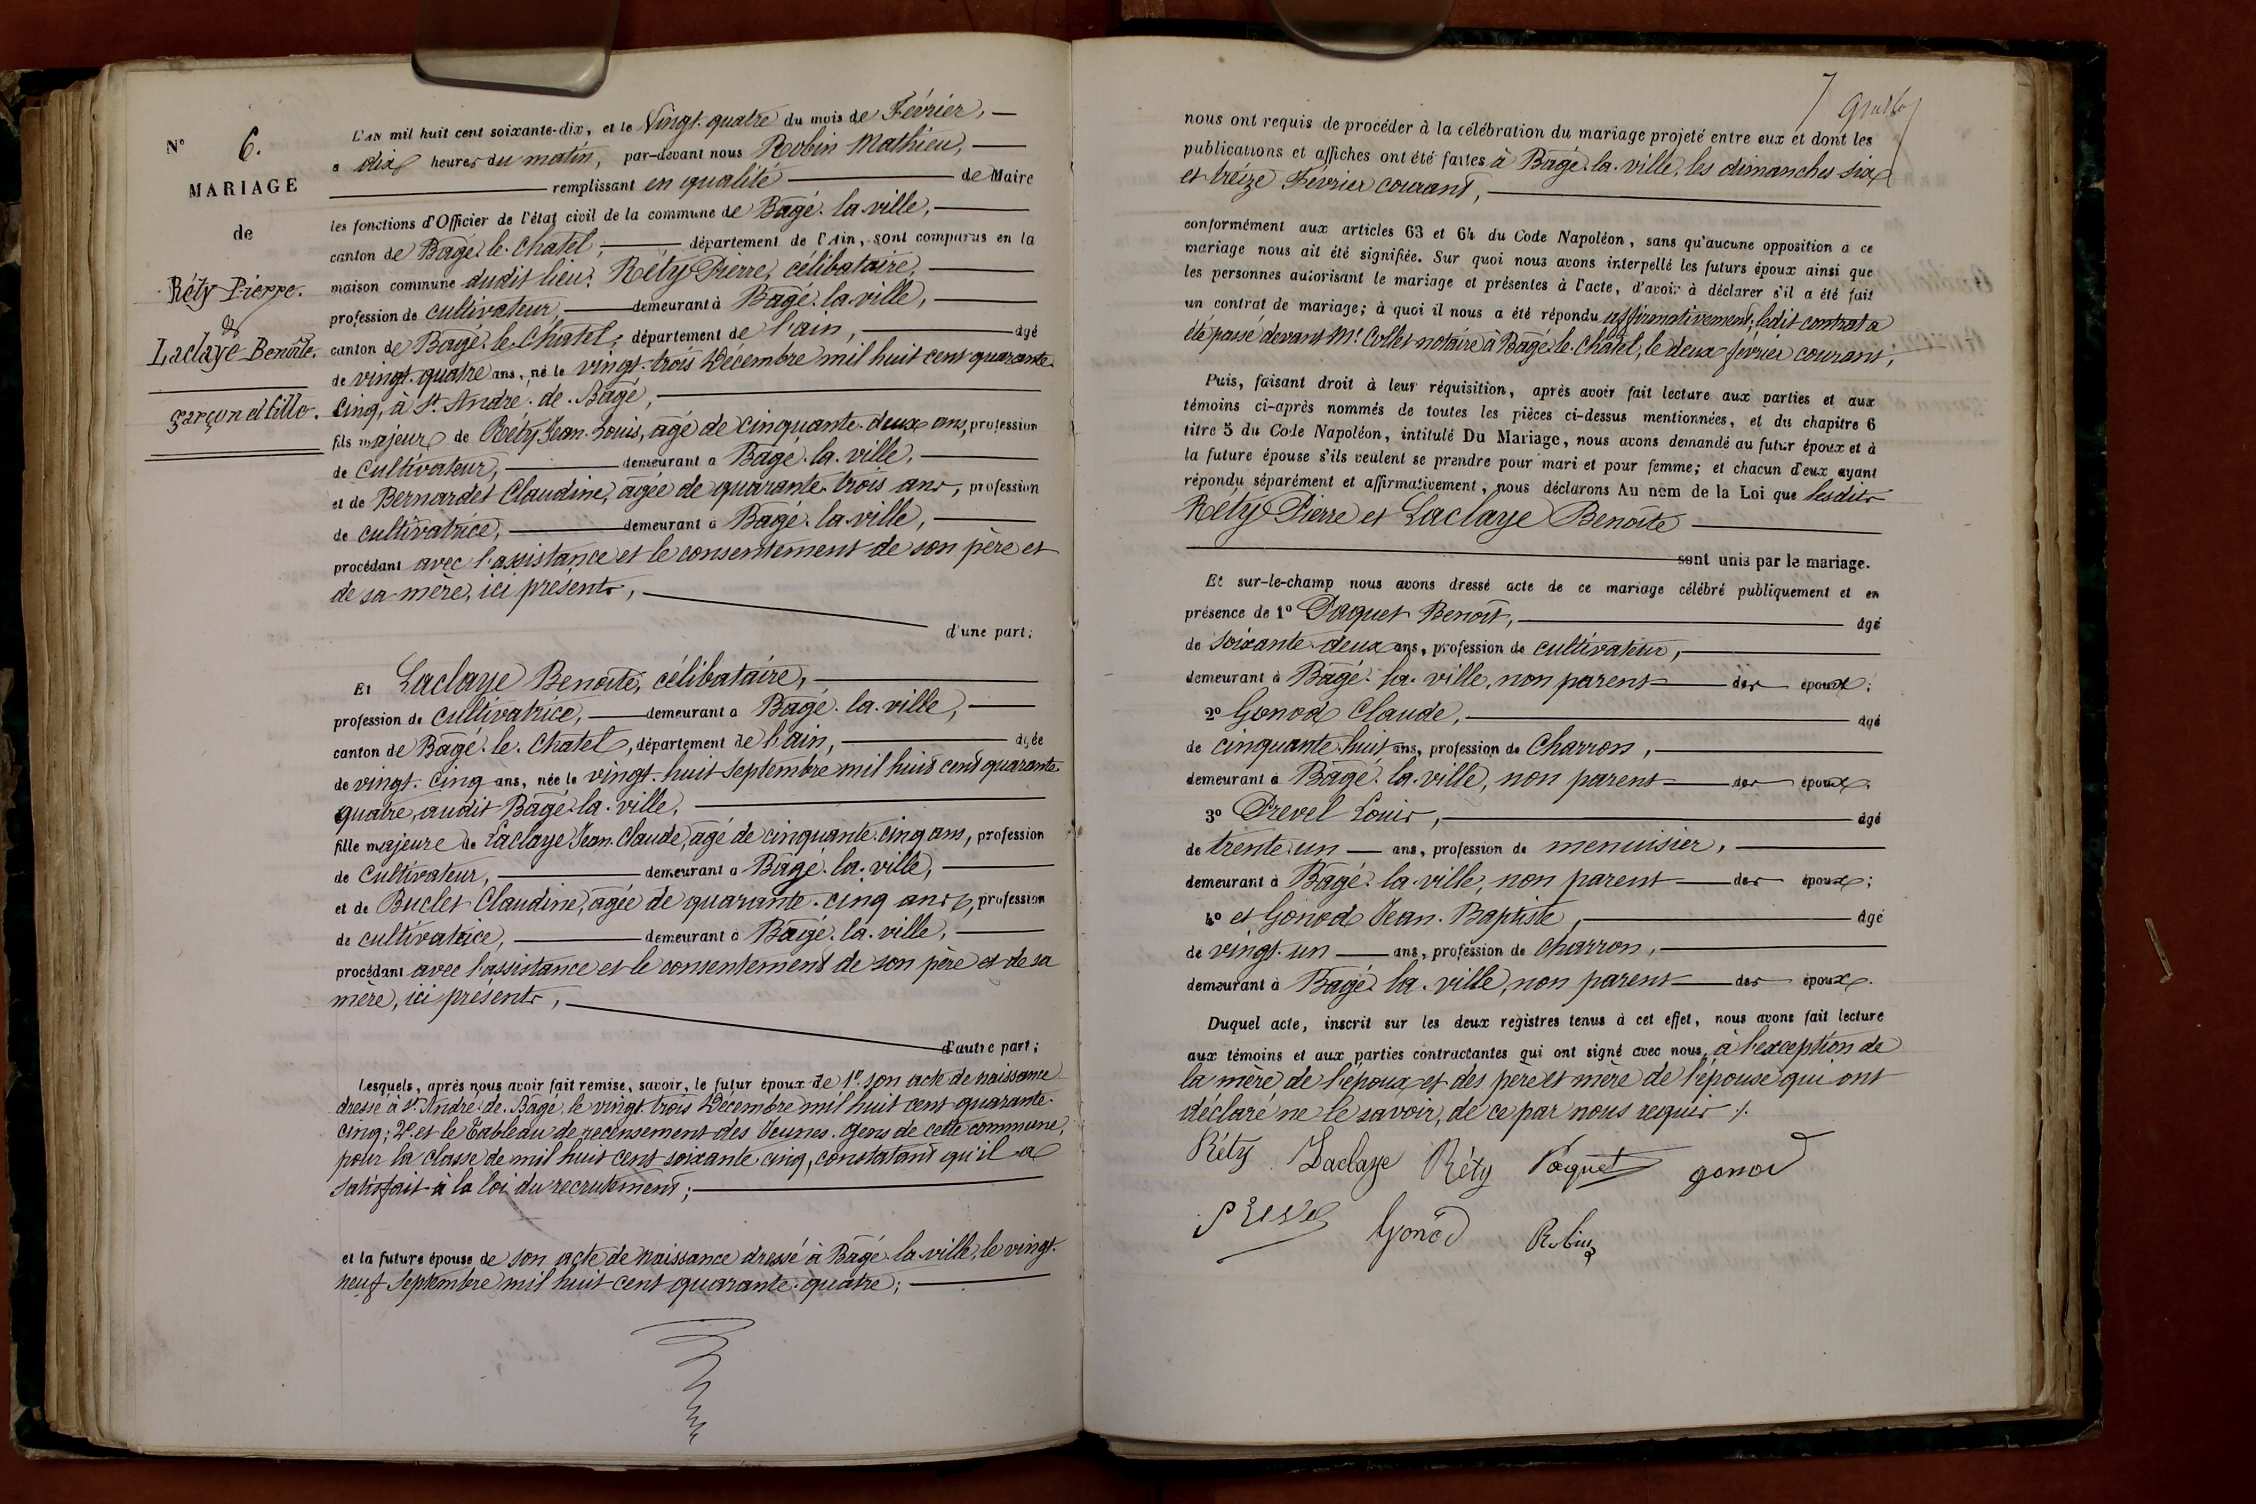 N° 6.
MARIAGE
de
Réty Pierre.
&
Laclaye Benoîte.
garçon et fille.
L'AN mil huit cent soixante-dix, et le Vingt-quatre du mois de Février,
à dix heures du matin, par-devant nous Robin Mathieu,
remplissant en qualité de Maire
les fonctions d'Officier de l'état civil de la commune de Bâgé-la-ville,
canton de Bâgé-le-Châtel, département de l'Ain, sont comparus en la
maison commune dudit lieu: Réty Pierre, célibataire,
profession de cultivateur, demeurant à Bâgé-la-ville,
canton de Bâgé-le-Chatel, département de l'ain, âgé
de vingt-quatre ans, né le vingt-trois Décembre mil huit cent quarante
cinq, à St. André-de-Bâgé,
fils majeur de Réty Jean-Louis, âgé de cinquante-deux ans, profession
de cultivateur, demeurant à Bâgé-la-ville,
et de Bernardet Claudine, âgée de quarante-trois ans, profession
de cultivatrice, demeurant à Bâgé-la-ville,
procédant avec l'assistance et le consentement de son père et
de sa mère, ici présents,
d'une part;
Et Laclaye Benoîte, célibataire,
profession de cultivatrice, demeurant à Bâgé-la-ville,
canton de Bâgé-le-Chatel, département de l'ain, âgée
de vingt-cinq ans, née le vingt-huit septembre mil huit cent quarante
quatre, audit Bâgé-la-ville,
fille majeure de Laclaye Jean-Claude, âgé de cinquante-cinq ans, profession
de cultivateur, demeurant à Bâgé-la-ville,
et de Buclet Claudine, âgée de quarante-cinq ans, profession
de cultivatrice, demeurant à Bâgé-la-ville,
procédant avec l'assistance et le consentement de son père et de sa
mère, ici présents,
d'autre part;
Lesquels, après nous avoir fait remise, savoir, le futur époux de 1° son acte de naissance
dressé à St. André-de-Bâgé, le vingt-trois Décembre mil huit cent quarante-
cinq; 2° et le Tableau de recensement des Jeunes-gens de cette commune,
pour la classe de mil huit cent soixante-cinq, constatant qu'il a
satisfait à la loi du recrutement;
et la future épouse de son acte de naissance dressé à Bâgé-la-ville, le vingt-
neuf Septembre mil huit cent quarante-quatre;
7
nous ont requis de procéder à la célébration du mariage projeté entre eux et dont les
publications et affiches ont été faites à Bâgé-la-ville, les dimanches six
et treize Février courant,
conformément aux articles 63 et 64 du Code Napoléon, sans qu'aucune opposition à ce
mariage nous ait été signifiée. Sur quoi nous avons interpellé les futurs époux ainsi que
les personnes autorisant le mariage et présentes à l'acte, d'avoir à déclarer s'il a été fait
un contrat de mariage; à quoi il nous a été répondu affirmativement; ledit contrat a
été passé devant Me. Collet notaire à Bâgé-le-Châtel, le deux février courant,
Puis, faisant droit à leur réquisition, après avoir fait lecture aux parties et aux
témoins ci-après nommés de toutes les pièces ci-dessus mentionnées, et du chapitre 6
titre 5 du Code Napoléon, intitulé Du Mariage, nous avons demandé au futur époux et à
la future épouse s'ils veulent se prendre pour mari et pour femme; et chacun d'eux ayant
répondu séparément et affirmativement, nous déclarons Au nom de la Loi que lesdits
Réty Pierre et Laclaye Benoîte
sont unis par le mariage.
Et sur-le-champ nous avons dressé acte de ce mariage célébré publiquement et en
présence de 1° Paquet Benoît, âgé
de soixante-deux ans, profession de cultivateur,
demeurant à Bâgé-la-ville, non parent des époux;
2° Gonod Claude, âgé
de cinquante-huit ans, profession de Charron,
demeurant à Bâgé-la-ville, non parent des époux.
3° Prevel Louis, âgé
de trente-un ans, profession de menuisier,
demeurant à Bâgé-la-ville, non parent des époux;
4° et Gonod Jean-Baptiste, âgé
de vingt-un ans, profession de charron,
demeurant à Bâgé-la-ville, non parent des époux.
Duquel acte, inscrit sur les deux registres tenus à cet effet, nous avons fait lecture
aux témoins et aux parties contractantes qui ont signé avec nous, à l'exception de
la mère de l'époux et des père et mère de l'épouse qui ont
déclaré ne le savoir, de ce par nous requis ./.
Réty Laclaye Réty Paquet gonod
Prevel Gonod Robin